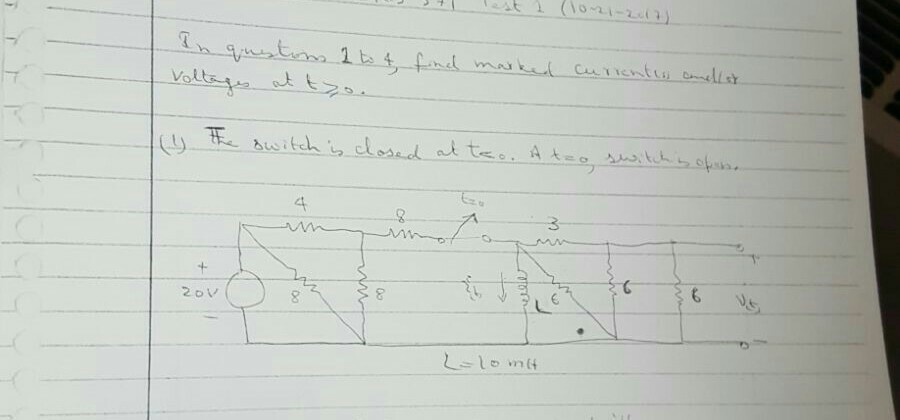 Test 1 (10-21-2017)
In questions 1 to 4, find marked currents and/or
voltages at t≥0.
(1) The switch is closed at t<0. At t=0, switch is open.
t=0
4 8 3
+ 20V -
8 8
iL L 6 6 6
+ V(t) -
L=10mH